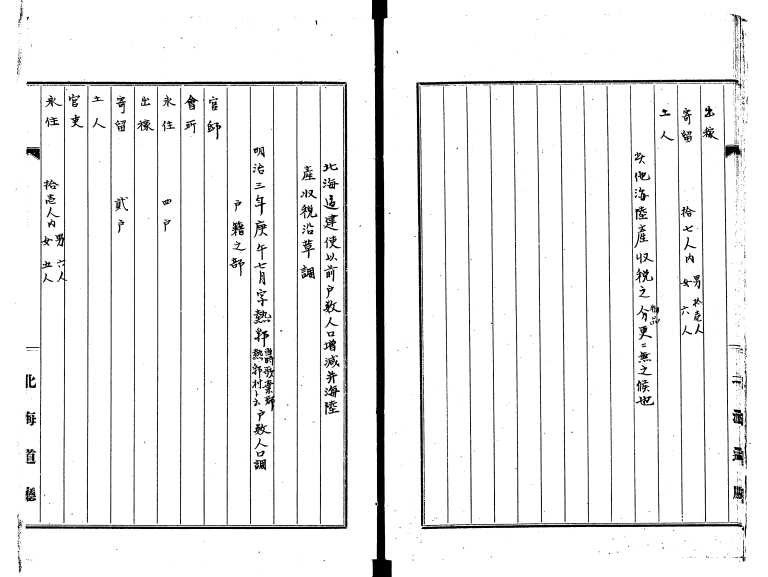 出稼
寄留 拾七人内 男拾壱人 女六人
土人
其他海陸産収税之分更ニ無之候也
物品
北海道建使以前戸数人口増減并海陸
産収税沿革調
明治三年庚午七月字熱郛 当時歌棄郡熱郛村ト云 戸数人口調
戸籍之部
官邸
會所
永住 四戸
出稼
寄留 貳戸
土人
官吏
永住 拾壱人内 男六人 女五人
北海道廳